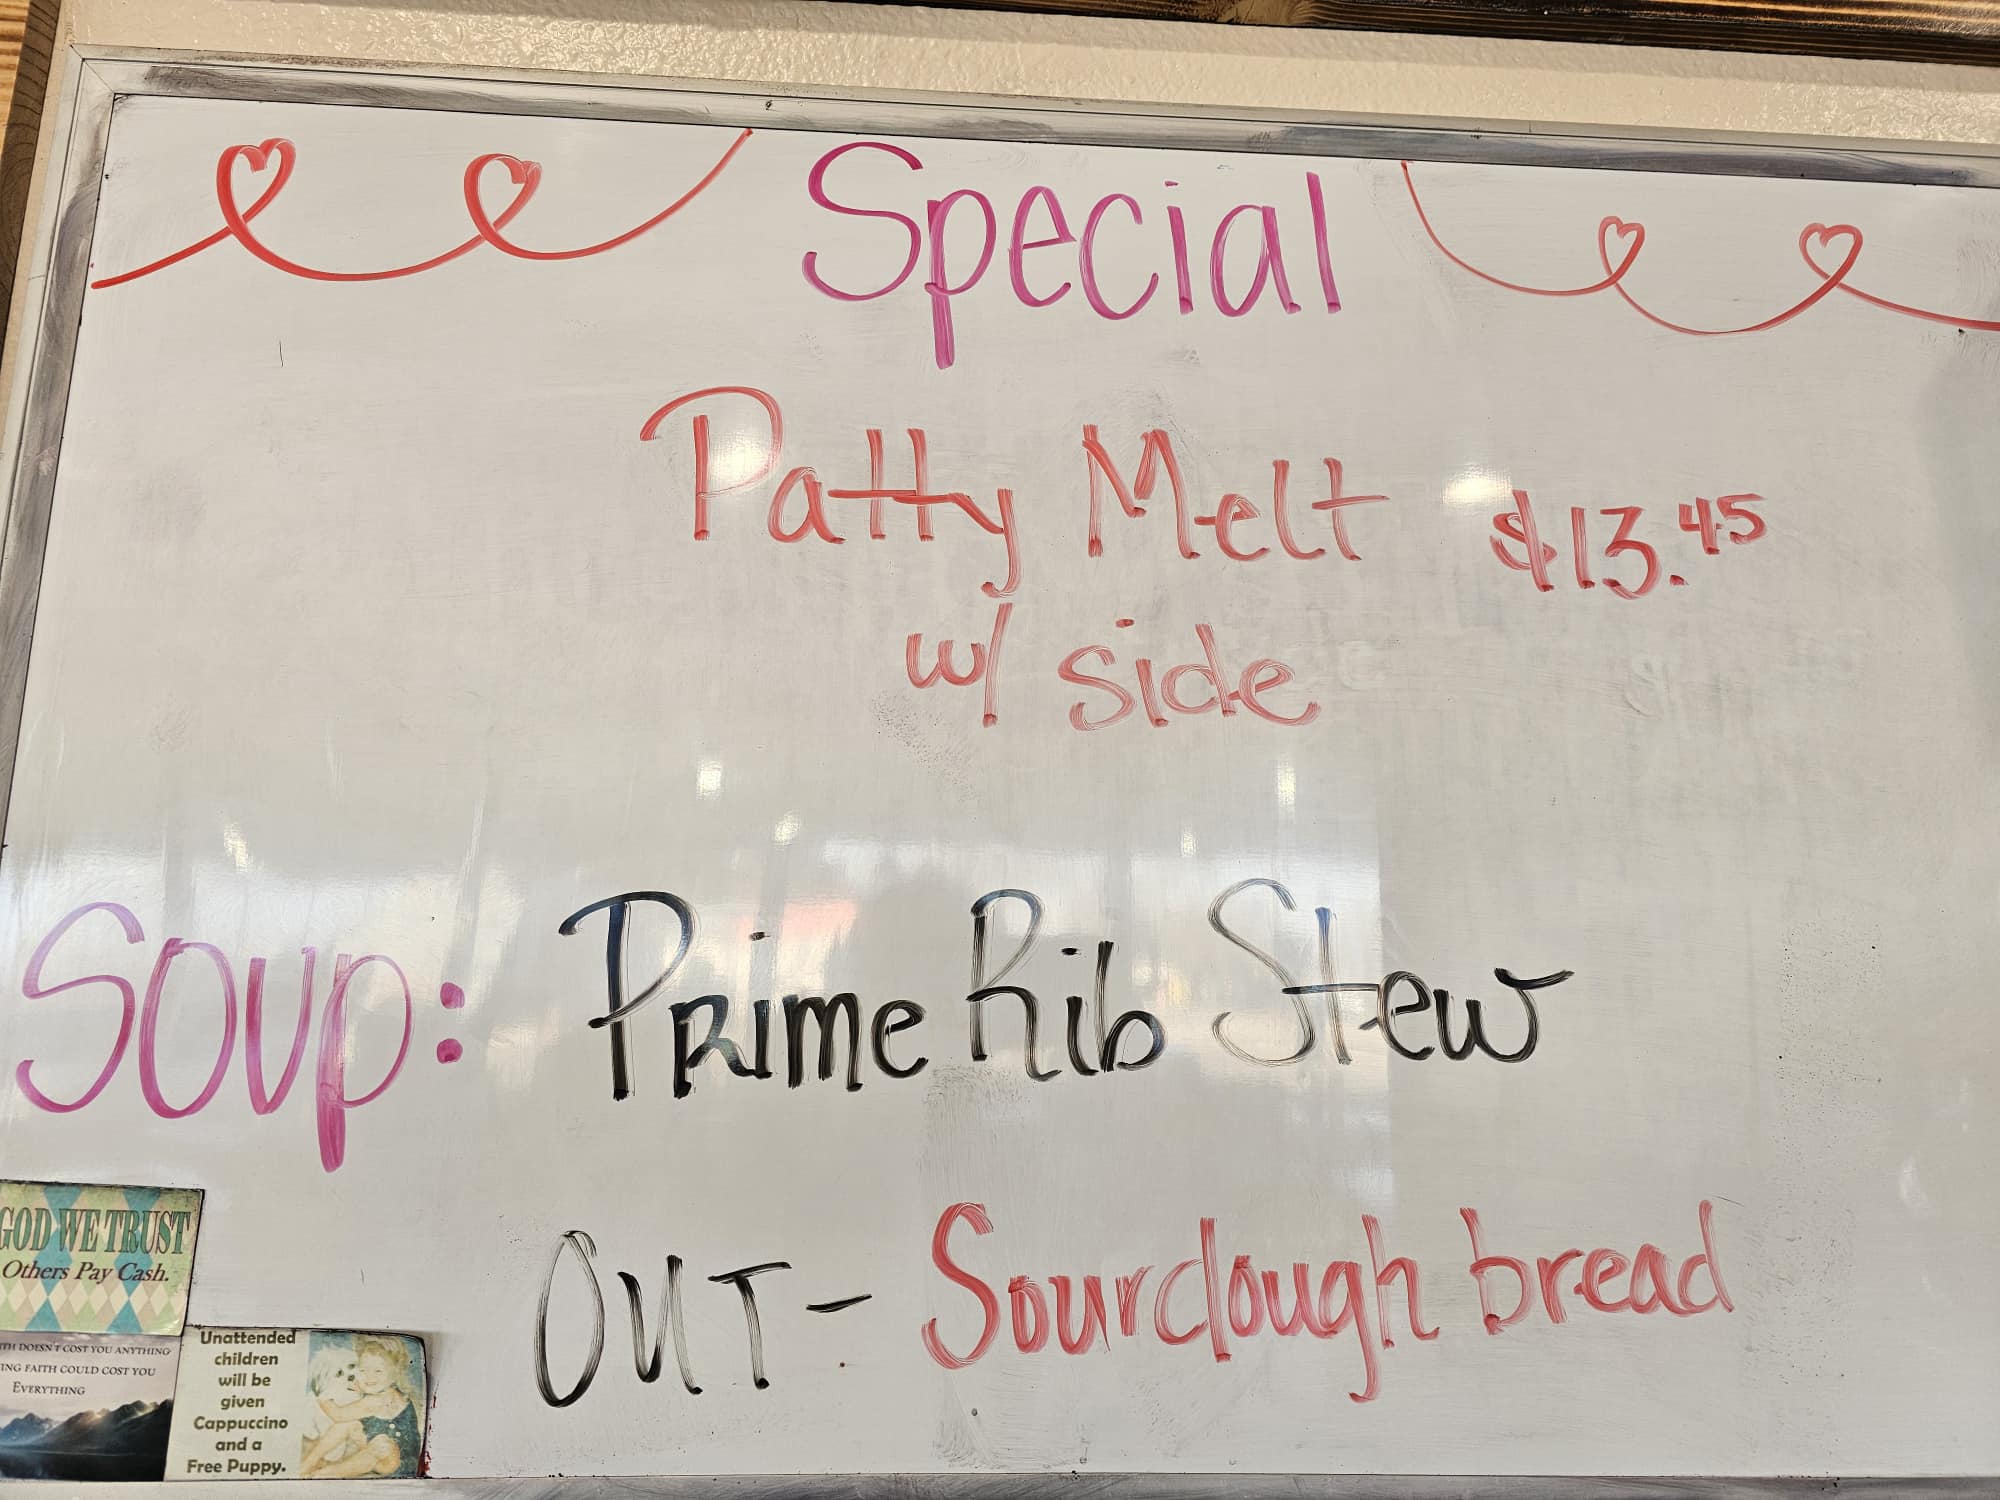 Special
Patty Melt $13.45
w/ side
Soup: Prime Rib Stew
OUT- Sourdough bread
GOD WE TRUST
Others Pay Cash.
DOESN'T COST YOU ANYTHING
FAITH COULD COST YOU
EVERYTHING
Unattended
children
will be
given
Cappuccino
and a
Free Puppy.